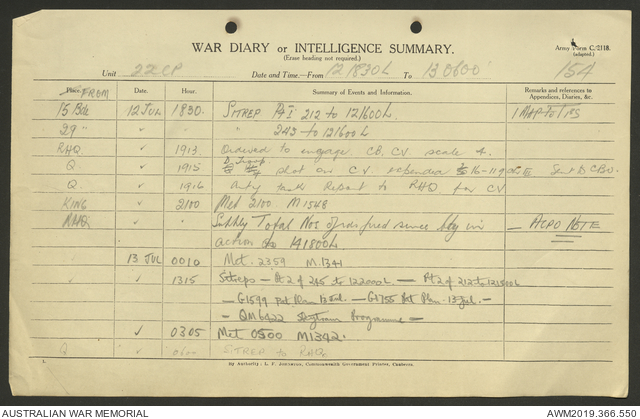 WAR DIARY or INTELLIGENCE SUMMARY.
(Erase heading not required.)
Army Form C.2118.
(adapted.)
Unit 22 CP Date and Time.—From 121830L To 130600 154
Place. FROM Date. Hour. Summary of Events and Information. Remarks and references to Appendices, Diaries, &c.
15 Bde 12 JUL 1830. SITREP. Pt I 212 to 121600L
29 " ✓ ✓ " 243 to 121600L
RHQ ✓ 1913 Ordered to engage CB, CV scale 4.
Q. ✓ 1915 D Troop shot on CV
Q ✓ 1916 Report to RHQ for CV
KING ✓ 2100 Met 2100 M1548
RHQ Total Nos of rds fired since bty in — ACPO NOTE
action to 141800L
13 JUL 0010 Met. 2359 M.1341
✓ 1315 Sitreps — Pt 2 of 245 to 122000L — Pt 2 of 212 to
— G1599 Pat Plan 13 Jul. — G1755 Pat Plan 13 Jul. —
— QM6422 Programme —
✓ 0305 Met 0300 M1342.
Q ✓ 0600 SITREP to RHQ
By Authority: L. F. Johnston, Commonwealth Government Printer, Canberra.
AUSTRALIAN WAR MEMORIAL
AWM2019.366.550